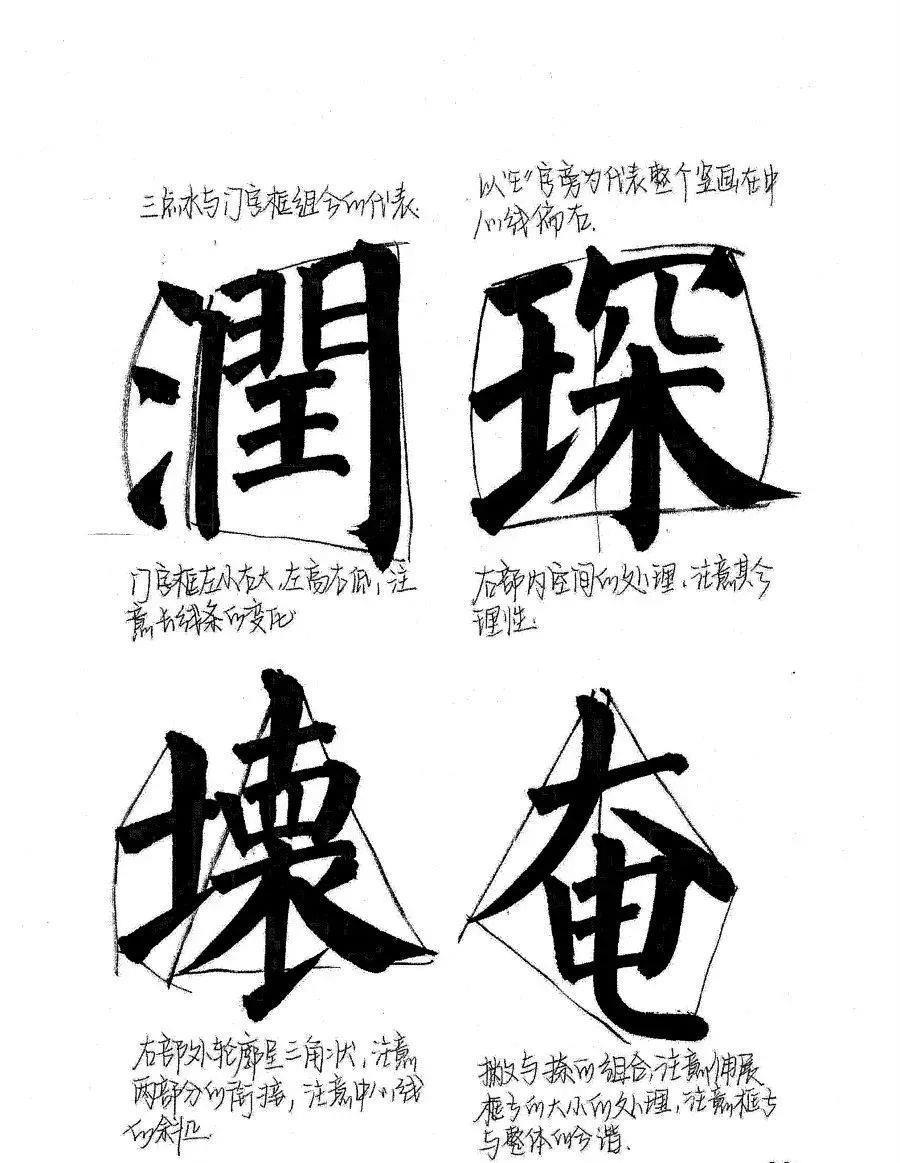 三点水与门字框组合的代表.
潤
门字框左小右大,左高右低,注
意长线条的变化
以"王"字旁为代表整个竖画在中
心线偏右.
琛
右部内空间的处理,注意其合
理性.
壞
右部外轮廓呈三角状,注意
两部分的衔接,注意中心线
的斜
奄
撇与捺的组合,注意伸展
框与的大小的处理,注意框与
与整体的合谐.